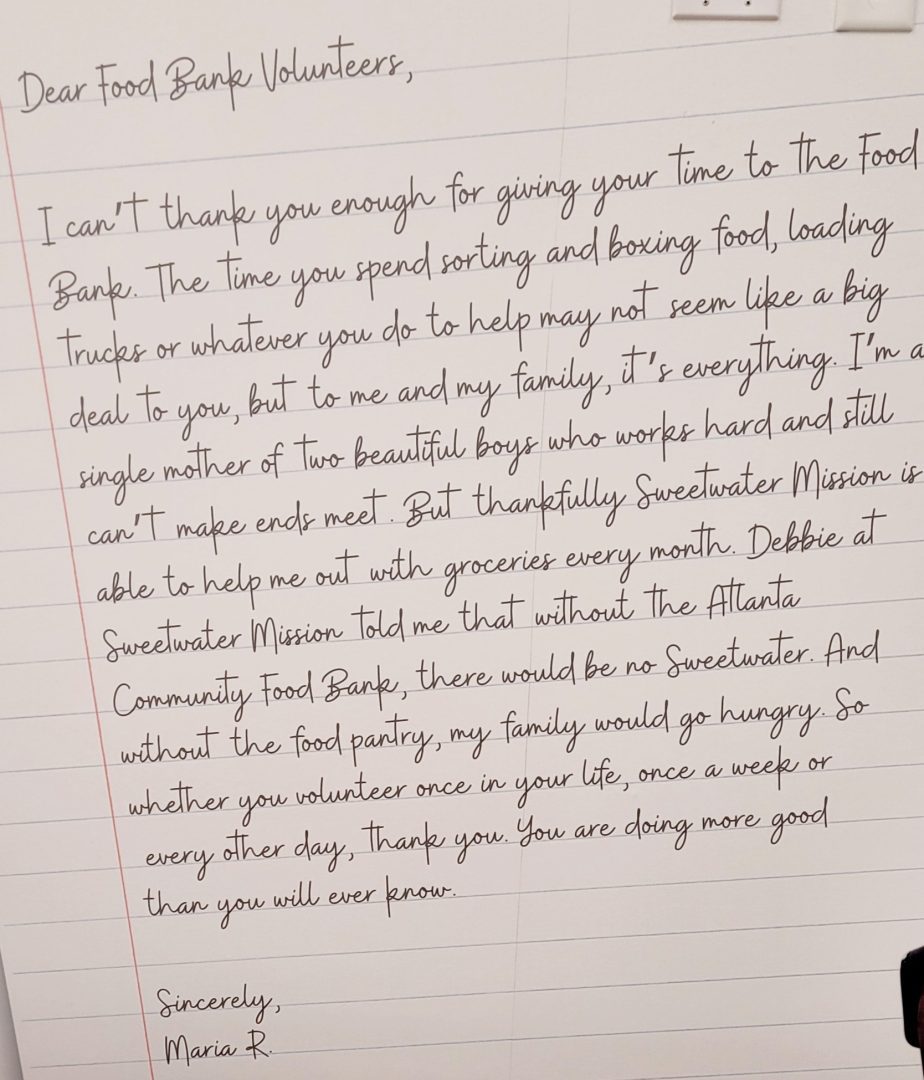 Dear Food Bank Volunteers,
I can't thank you enough for giving your time to the Food
Bank. The time you spend sorting and boxing food, loading
trucks or whatever you do to help may not seem like a big
deal to you, but to me and my family, it's everything. I'm a
single mother of two beautiful boys who works hard and still
can't make ends meet. But thankfully Sweetwater Mission is
able to help me out with groceries every month. Debbie at
Sweetwater Mission told me that without the Atlanta
Community Food Bank, there would be no Sweetwater. And
without the food pantry, my family would go hungry. So
whether you volunteer once in your life, once a week or
every other day, thank you. You are doing more good
than you will ever know.
Sincerely,
Maria R.